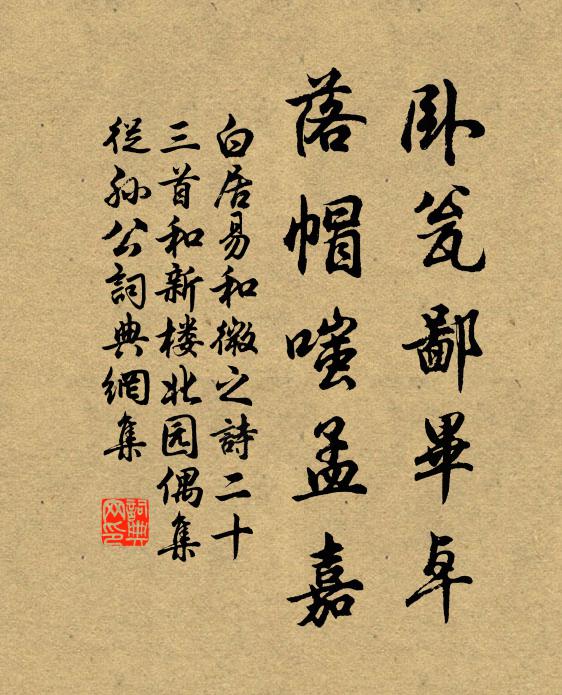 卧瓮鄙畢卓
落帽嗤孟嘉
白居易和微之詩二十
三首和新楼北园偶集
從孙公詞典網集
詞典
网印